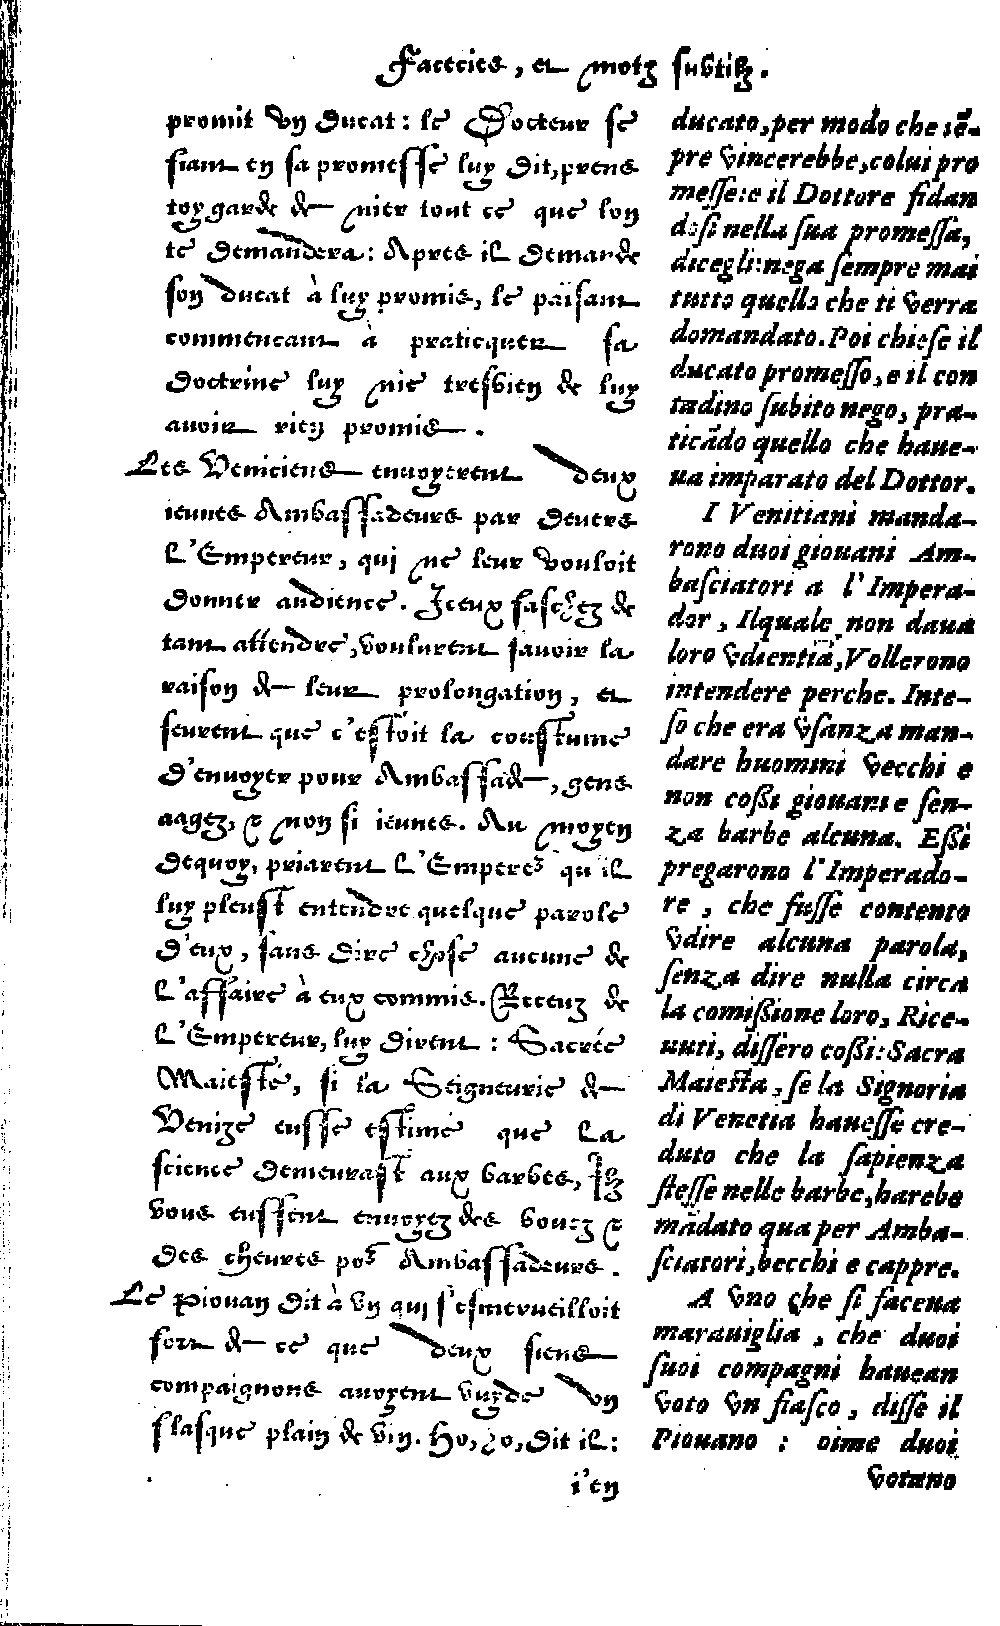 Facecies, et motz subtilz.
promit vn ducat: le Docteur se
fiant en sa promesse luy dit, prens
toy garde de nier tout ce que lon
te demandera: Apres il demande
son ducat à luy promis, le païsant
commencant à praticquer sa
doctrine luy nie tresbien de luy
avoir rien promis.
Les Veniciens envoyerent deux
ieunes Ambassadeurs par devers
L'Empereur, qui ne leur vouloit
donner audience. Iceux faschez de
tant attendre, voulurent savoir la
raison de leur prolongation, et
seurent que c'estoit la coustume
d'envoyer pour Ambassade, gens
aagez, & non si ieunes. Au moyen
dequoy, priarent L'Empereʳ qu'il
luy pleust entendre quelque parole
d'eux, sans dire chose aucune de
L'affaire à eux commis. Receuz de
L'Empereur, luy dirent: Sacrée
Maiesté, si la Seigneurie de
Venize eusse estimé que La
science demeurast aux barbes, Ilz
vous eussent envoyez des boucz &
des cheures poʳ Ambassadeurs.
Le Piouan dit à vn qui s'esmerueilloit
fort de ce que deux siens
compaignons avoyent vuyde vn
flasque plain de vin. Ho, ho, dit il:
i'en
ducato, per modo che sē-
pre vincerebbe, colui pro
messe: e il Dottore fidan
dosi nella sua promessa,
dicegli: nega sempre mai
tutto quello che ti verra
domandato. Poi chiese il
ducato promesso, e il con
tadino subito nego, pra-
ticādo quello che haue-
ua imparato del Dottor.
I Venitiani manda-
rono duoi giouani Am-
basciatori a l'Impera-
dor, Ilquale non daua
loro vdientiā, Vollerono
intendere perche. Inte-
so che era vsanza man-
dare huomini vecchi e
non coßi giouani e sen-
za barbe alcuna. Eßi
pregarono l'Imperado-
re, che fusse contento
vdire alcuna parola,
senza dire nulla circa
la comißione loro, Rice-
uuti, dissero coßi: Sacra
Maiesta, se la Signoria
di Venetia hauesse cre-
duto che la sapienza
stesse nelle barbe, harebe
mādato qua per Amba-
sciatori, becchi e cappre.
A vno che si facena
marauiglia, che duoi
suoi compagni hauean
voto vn fiasco, disse il
Piouano: oime duoi
votano